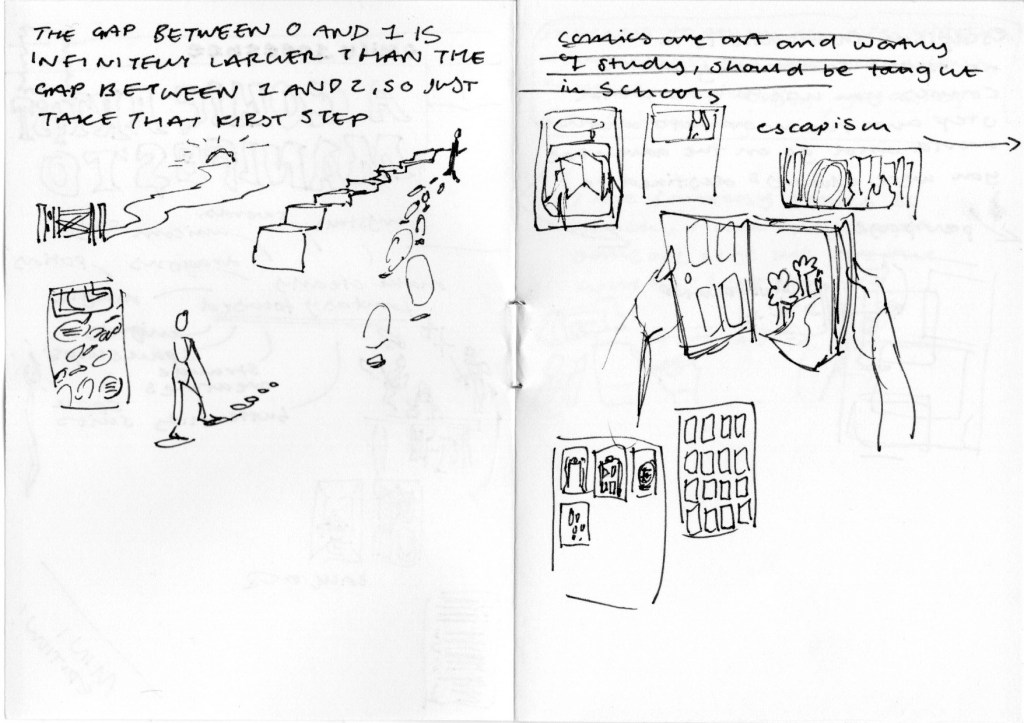 THE GAP BETWEEN 0 AND 1 IS
INFINITELY LARGER THAN THE
GAP BETWEEN 1 AND 2, SO JUST
TAKE THAT FIRST STEP
comics are art and worthy
of study, should be taught
in schools
escapism